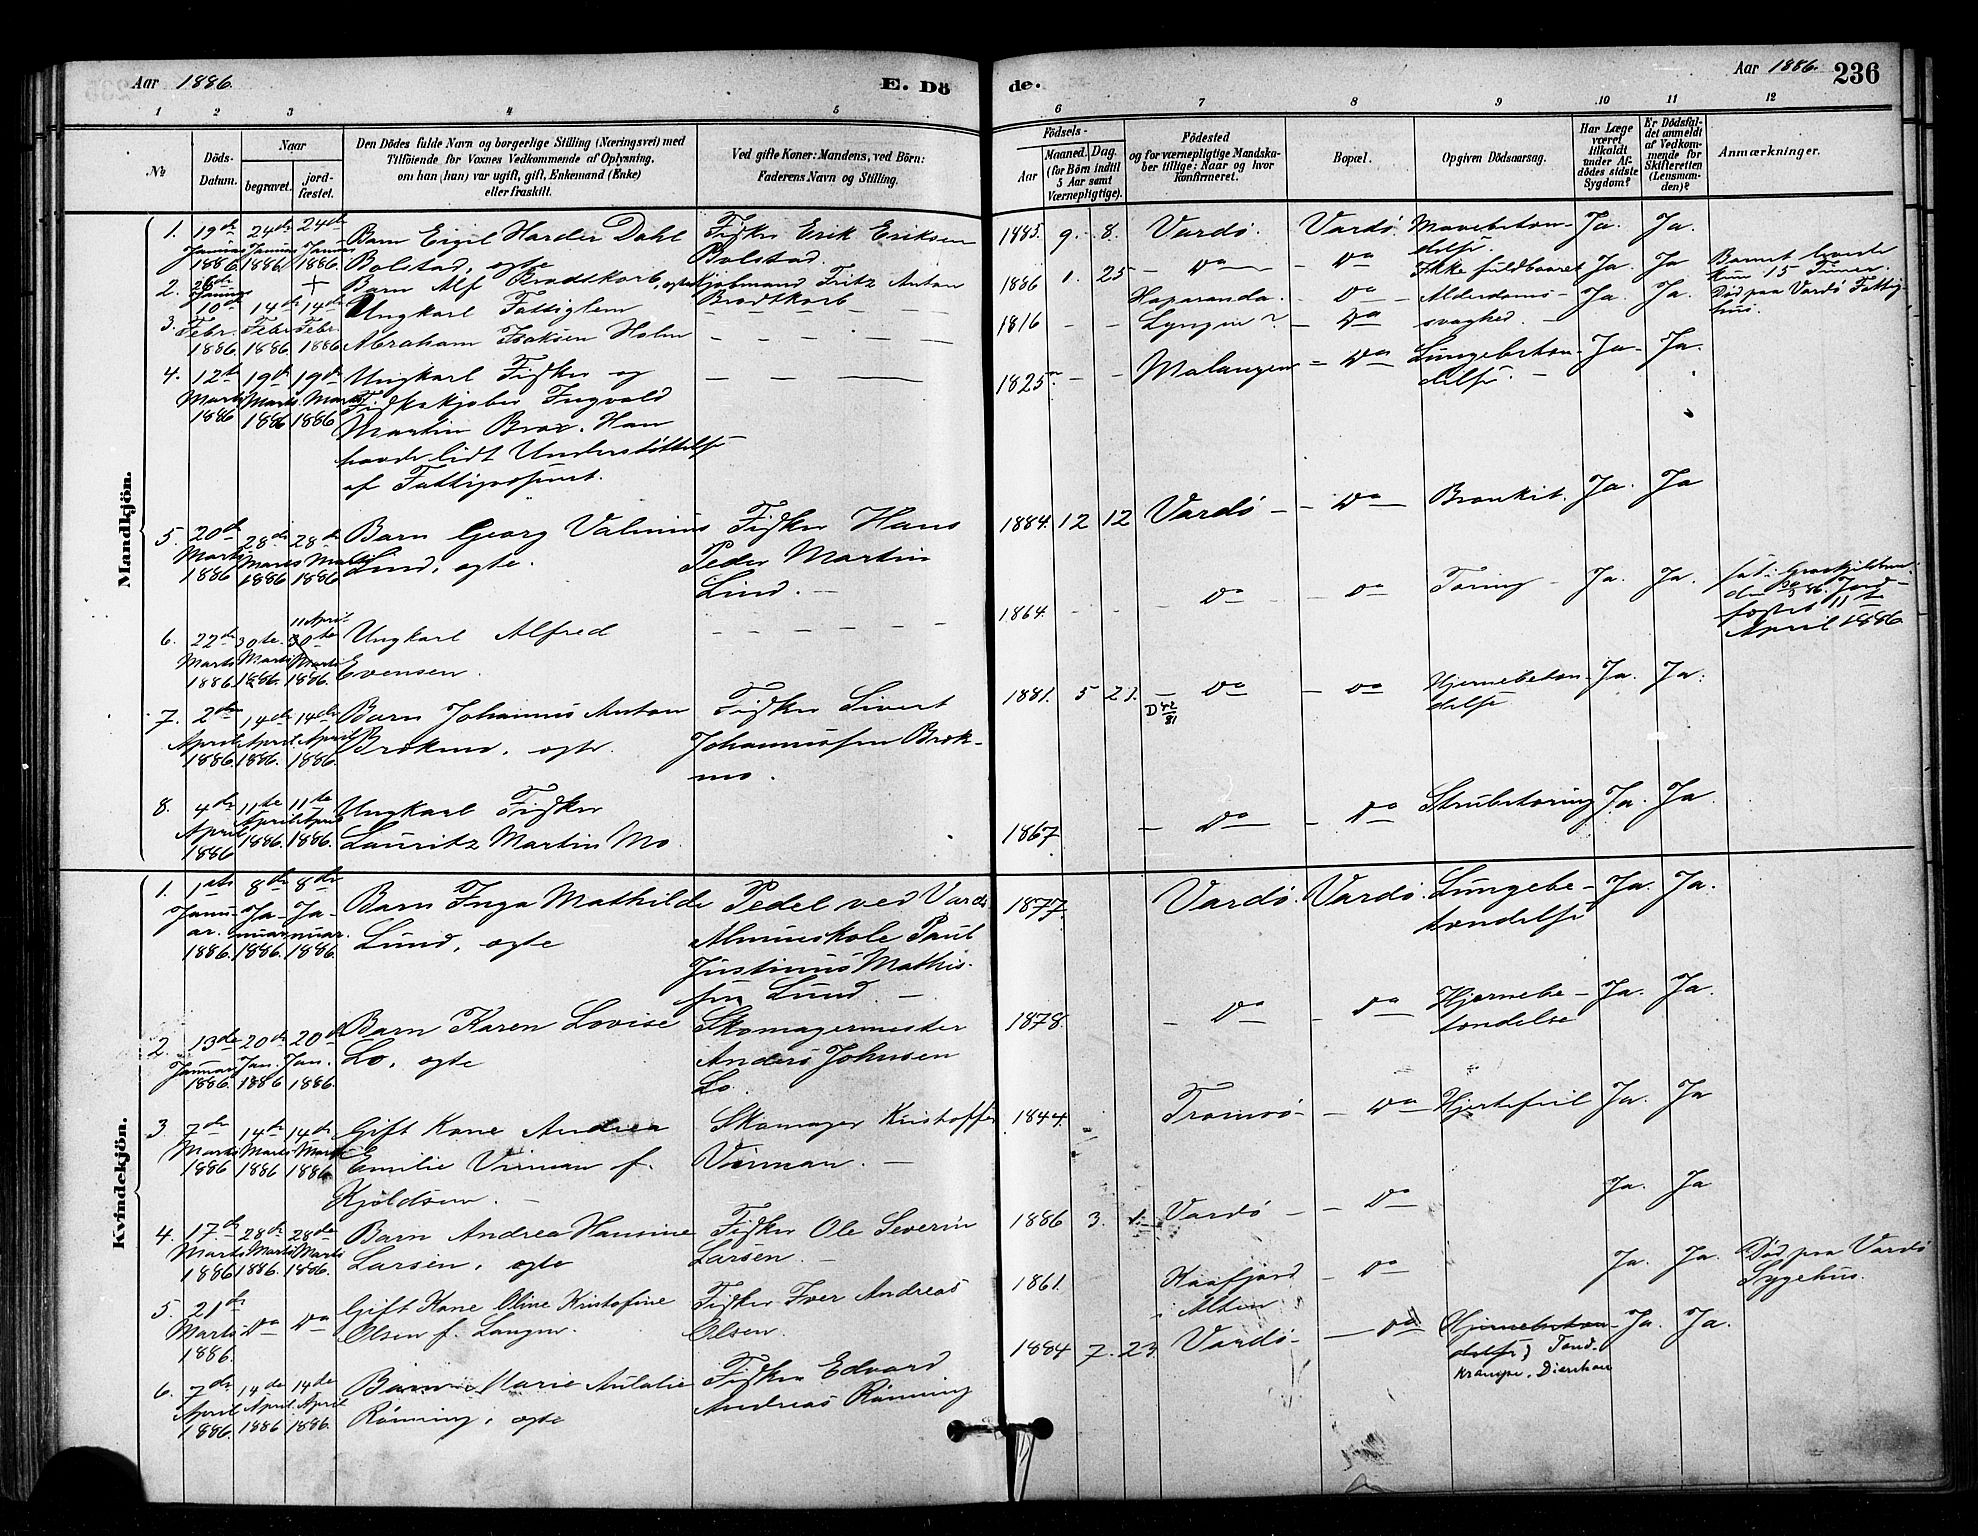 Aar 1886. E. Dö
de. Aar 1886. 236
1 2 3 4 5 6 7 8 9 10 11 12
№
Döds-
Datum.
Naar
begravet.
jord-
fæstet.
Den Dödes fulde Navn og borgerlige Stilling (Næringsvei) med
Tilföiende for Voxnes Vedkommende af Oplysning,
om han (hun) var ugift, gift, Enkemand (Enke)
eller fraskilt.
Ved gifte Koner: Mandens, ved Börn:
Faderens Navn og Stilling.
Födsels-
Aar
Maaned. Dag.
(for Börn indtil
5 Aar samt
Værnepligtige).
Födested
og for værnepligtige Mandska-
ber tillige: Naar og hvor
Konfirmeret.
Bopæl.
Opgiven Dödsaarsag.
Har Læge
været
tilkaldt
under Af-
dödes sidste
Sygdom?
Er Dödsfal-
det anmeldt
af Vedkom-
mende for
Skifteretten
(Lensman-
den)?
Anmærkninger.
Mandkjön.
1. 19de Januar 1886. 24de Januar 1886. 24de Januar 1886.
Barn Eigil Harder Dahl
Bolstad, ægte
Fisker Erik Eriksen
Bolstad.
1885. 9. 8. Vardö. Vardö. Mavebetæn-
delse. Ja. Ja.
2. 26de Januar +
Barn Alf Brodtkorb, ægte
Kjöbmand Fritz Anton
Brodtkorb
1886 1. 25 Do Do Ikke fuldbaaret Ja. Ja
Barnet levede
kun 15 Timer.
3. 10de Febr. 1886. 14de Febr. 1886. 14de Febr. 1886.
Ungkarl Fattiglem
Abraham Isaksen Holm
1816 Haparanda.
Lyngen? Do Alderdoms-
svaghed. Ja. Ja.
Död paa Vardö Fattig-
hus.
4. 12te Marts 1886 19de Marts 1886 19de Marts 1886
Ungkarl Fisker og
Fiskekjöber Ingvald
Martin Brox. Han
havde lidt Understöttelse
af Fattigvæsenet.
1825 Malangen Do Lungebetæn-
delse. Ja. Ja.
5. 20de Marts 1886 28de Marts 1886 28de Marts 1886
Barn Georg Valinius
Lind, ægte.
Fisker Hans
Peder Martin
Lind.
1884. 12 12 Vardö Do Bronkit. Ja. Ja
6. 22de Marts 1886. 30te Marts 1886. 11 April 30te Marts 1886.
Ungkarl Alfred
Evensen.
1864. Do Do Tæring Ja. Ja.
April 1886
7. 2den April 1886 14de April 1886. 14de April 1886
Barn Johannes Anton
Brekmo, ægte.
Fisker Sivert
Johannessen Brek-
mo.
1881. 5 21. Do
D 42/81
Do Hjernebetæn-
delse Ja. Ja.
8. 4de April 1886 11te April 1886. 11te April 1886.
Ungkarl Fisker
Lauritz Martin Mo.
1867 Do Do Strubetæring Ja. Ja.
Kvindekjön.
1. 1ste Janu-
ar. 1886. 8de Ja-
nuar 1886. 8de Ja-
nuar. 1886.
Barn Inga Mathilde
Lund, ægte
Pedel ved Vardö
Almueskole Paul
Justinus Mathis-
sen Lund.
1877. Vardö. Vardö. Lungebe-
tændelse Ja. Ja.
2. 13de Januar 1886. 20de Jan. 1886 20de Jan. 1886.
Barn Karen Lovise
Lo, ægte
Skomagermester
Anders Johnsen
Lo.
1878. Do Do Hjernebe-
tændelse Ja. Ja.
3. 7de Marts 1886 14de Marts 1886 14de Marts 1886
Gift Kone Andrea
Emilie Virman f.
Kjeldsen.
Skomager Kristoffer
Virman.
1844. Tromsö Do Hjertefeil Ja. Ja
4. 17de Marts 1886 28de Marts 1886. 28de Marts 1886.
Barn Andrea Hansine
Larsen, ægte
Fisker Ole Severin
Larsen.
1886 3. 1. Vardö Do Ja. Ja
5. 21de Marts 1886. Do Do
Gift Kone Oline Kristofine
Olsen f. Langen.
Fisker Iver Andreas
Olsen.
1861. Kaafjord
i Alten Do Ja. Ja.
Död paa Vardö
Sygehus.
6. 7de April 1886. 14de April. 1886 14de April 1886.
Barn Marie Aulalie
Rönning, ægte
Fisker Edvard
Andreas Rönning
1884 7. 23. Vardö Do Hjernebetæn-
delse, Tand-
krampe. Diarrhoe Ja. Ja.